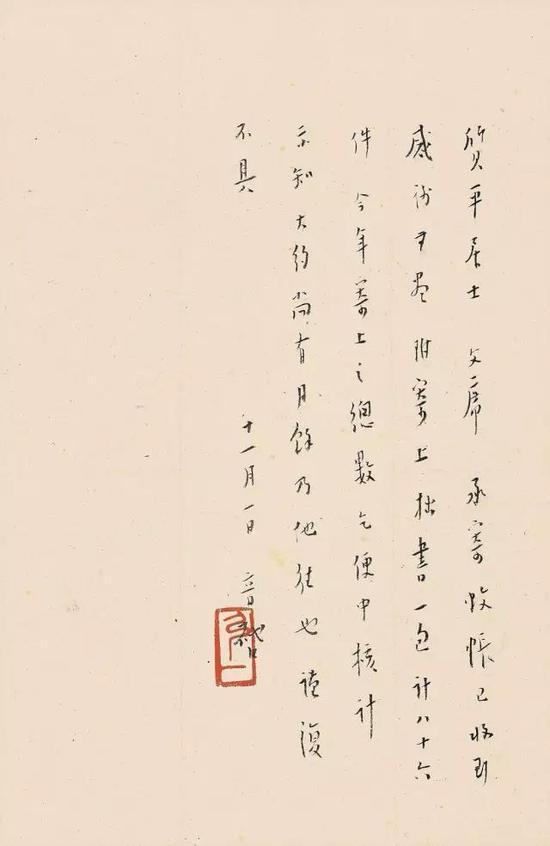 質平居士 文席 承寄蚊帳已收到
感謝无盡 附寄上拙書一包計八十六
件 今年寄上之總數乞便中核計
示知大約尚有月餘乃他往也 謹復
不具
十一月一日 音啟